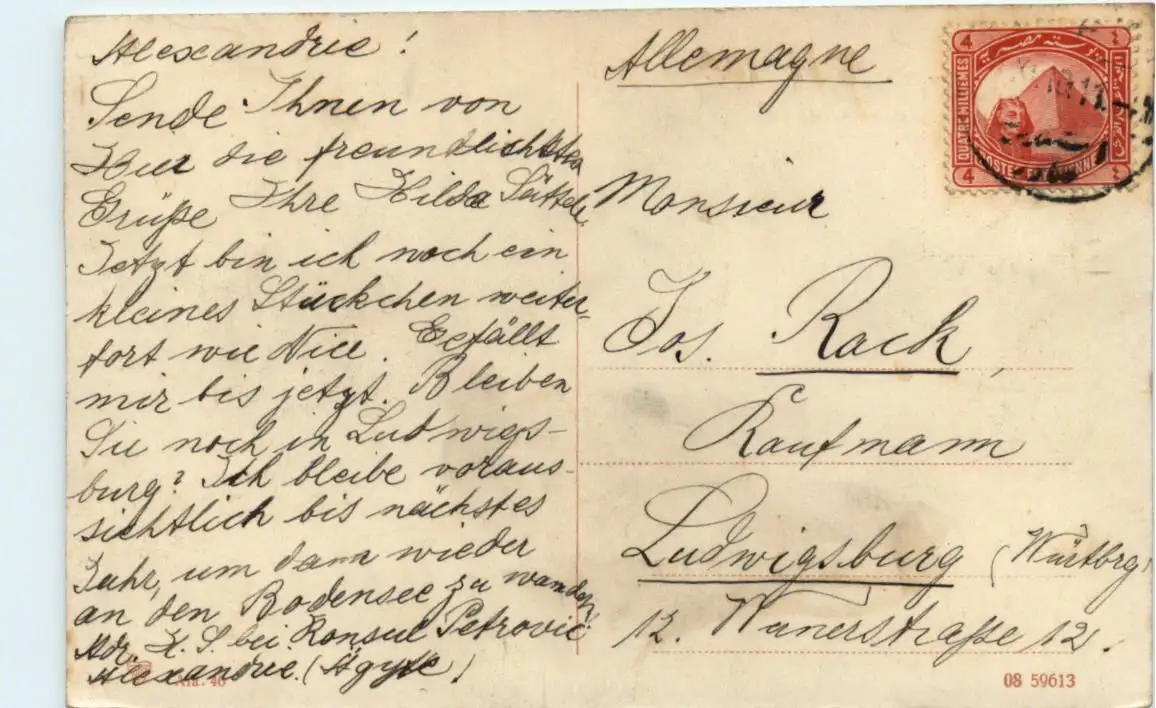 Alexandrie!
Sende Ihnen von
Hier die freundlichsten
Grüße Ihre Hilda
Jetzt bin ich noch ein
kleines Stückchen weiter-
fort wie Nice. Gefällt
mir bis jetzt. Bleiben
Sie noch in Ludwigs-
burg? Ich bleibe voraus-
sichtlich bis nächstes
Jahr, um dann wieder
an den Bodensee zu wandern!
Adr. H. S. bei Konsul Petrović
Alexandrie. (Ägypte)
Allemagne
Monsieur
Jos. Rack,
Kaufmann
Ludwigsburg (Würtbrg)
12. 12.
4 4
QUATRE MILLIEMES
بوستة مصرية
4 4
08 59613